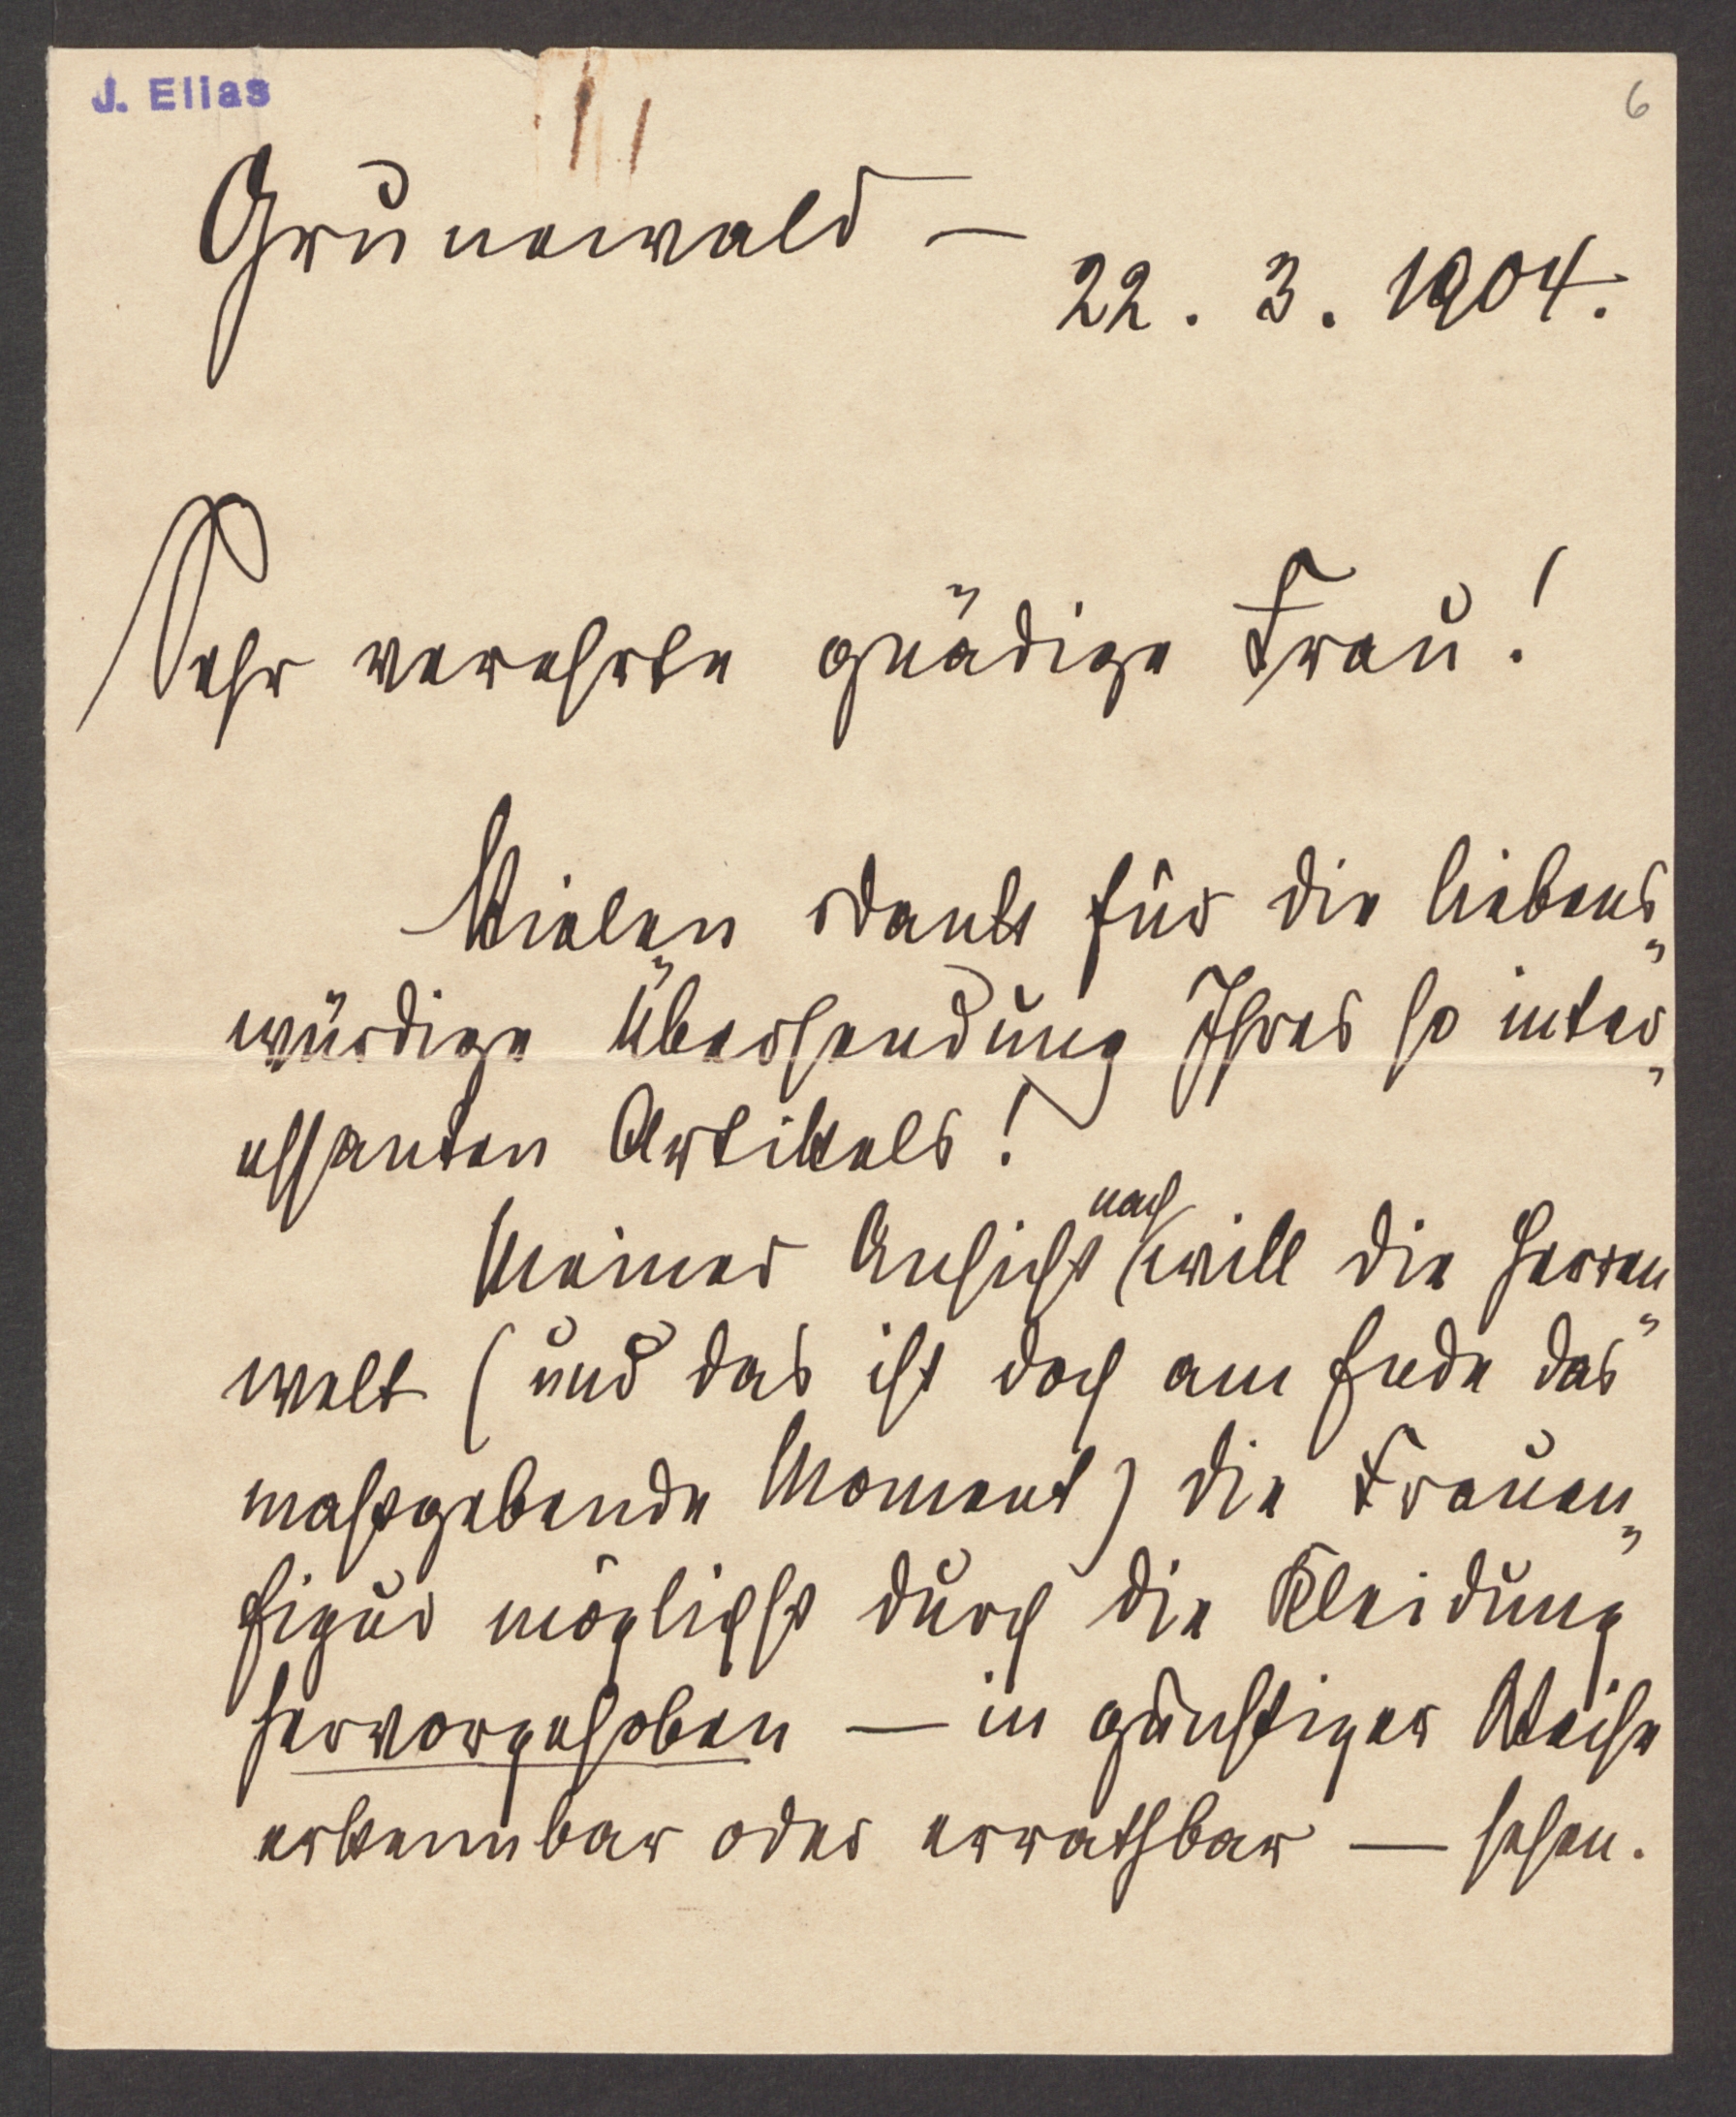 J. Elias
6
Grunewald —
22. 3. 1904.
Sehr verehrte gnädige Frau!
Vielen Dank für die liebens„
würdige Übersendung Ihres so inter„
essanten Artikels!
nach
Meiner Ansicht will die Herren„
welt (und das ist doch am Ende das
maßgebende Moment) die Frauen„
figur möglichst durch die Kleidung
hervorgehoben — in günstiger Weise
erkennbar oder errathbar — sehen.